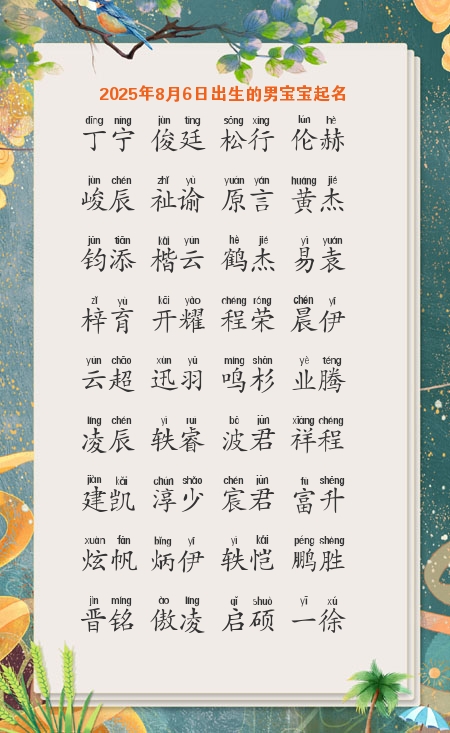 2025年8月6日出生的男宝宝起名
dīng níng jùn tíng sōng xíng lún hè
丁宁 俊廷 松行 伦赫
jùn chén zhǐ yù yuán yán huáng jié
峻辰 祉谕 原言 黄杰
jūn tiān kǎi yún hè jié yì yuán
钧添 楷云 鹤杰 易袁
zǐ yù kāi yào chéng róng chén yī
梓育 开耀 程荣 晨伊
yún chāo xùn yǔ míng shān yè téng
云超 迅羽 鸣杉 业腾
líng chén yì ruì bō jūn xiáng chéng
凌辰 轶睿 波君 祥程
jiàn kǎi chún shǎo chén jūn fù shēng
建凯 淳少 宸君 富升
xuàn fān bǐng yī yì kǎi péng shèng
炫帆 炳伊 轶恺 鹏胜
jìn míng ào líng qǐ shuò yī xú
晋铭 傲凌 启硕 一徐